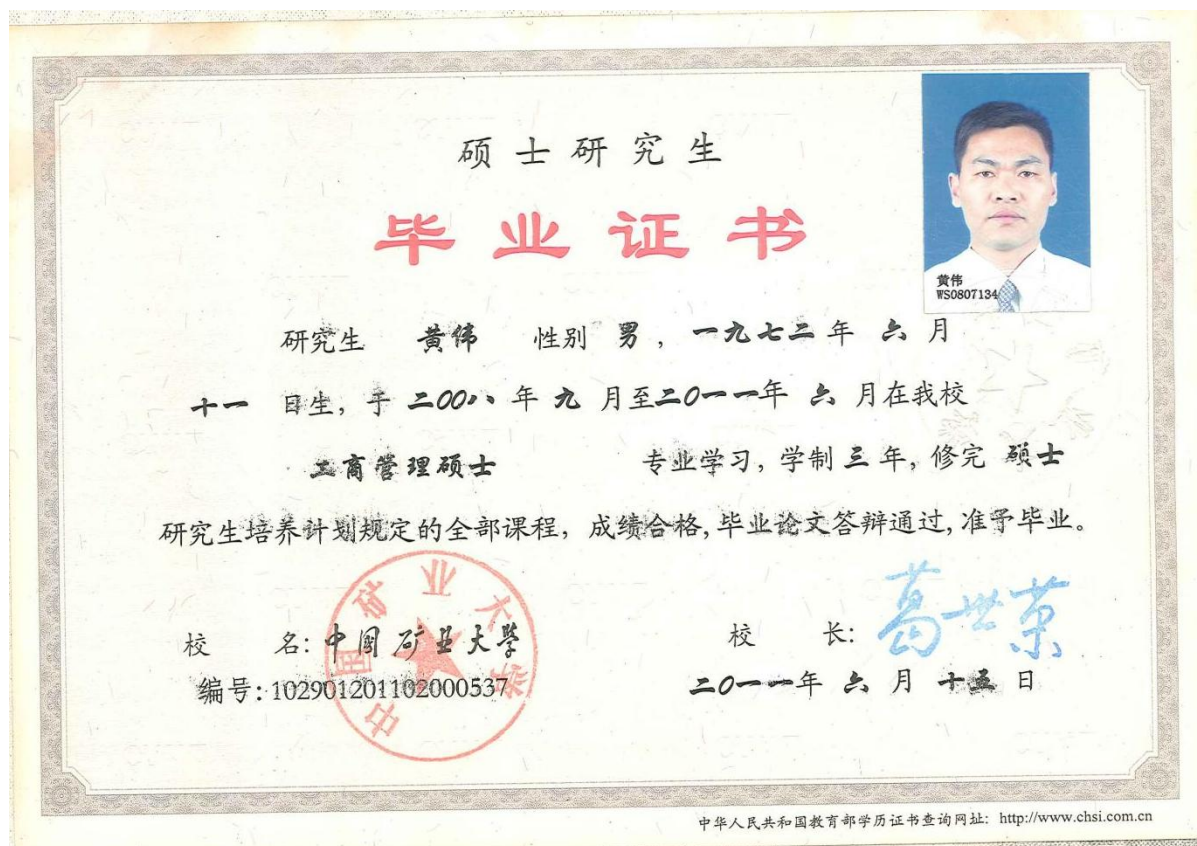 硕士研究生
毕业证书
黄伟
WS0807134
研究生 黄伟 性别 男，一九七二年 六 月
十一 日生，于 二00八 年 九 月至二0一一年 六 月在我校
工商管理硕士 专业学习，学制 三 年，修完 硕士
研究生培养计划规定的全部课程，成绩合格，毕业论文答辩通过，准予毕业。
中国矿业大学
校 名：中国矿业大学 校 长：葛世荣
编号：102901201102000537 二0一一年 六 月 十五 日
中华人民共和国教育部学历证书查询网址：http://www.chsi.com.cn